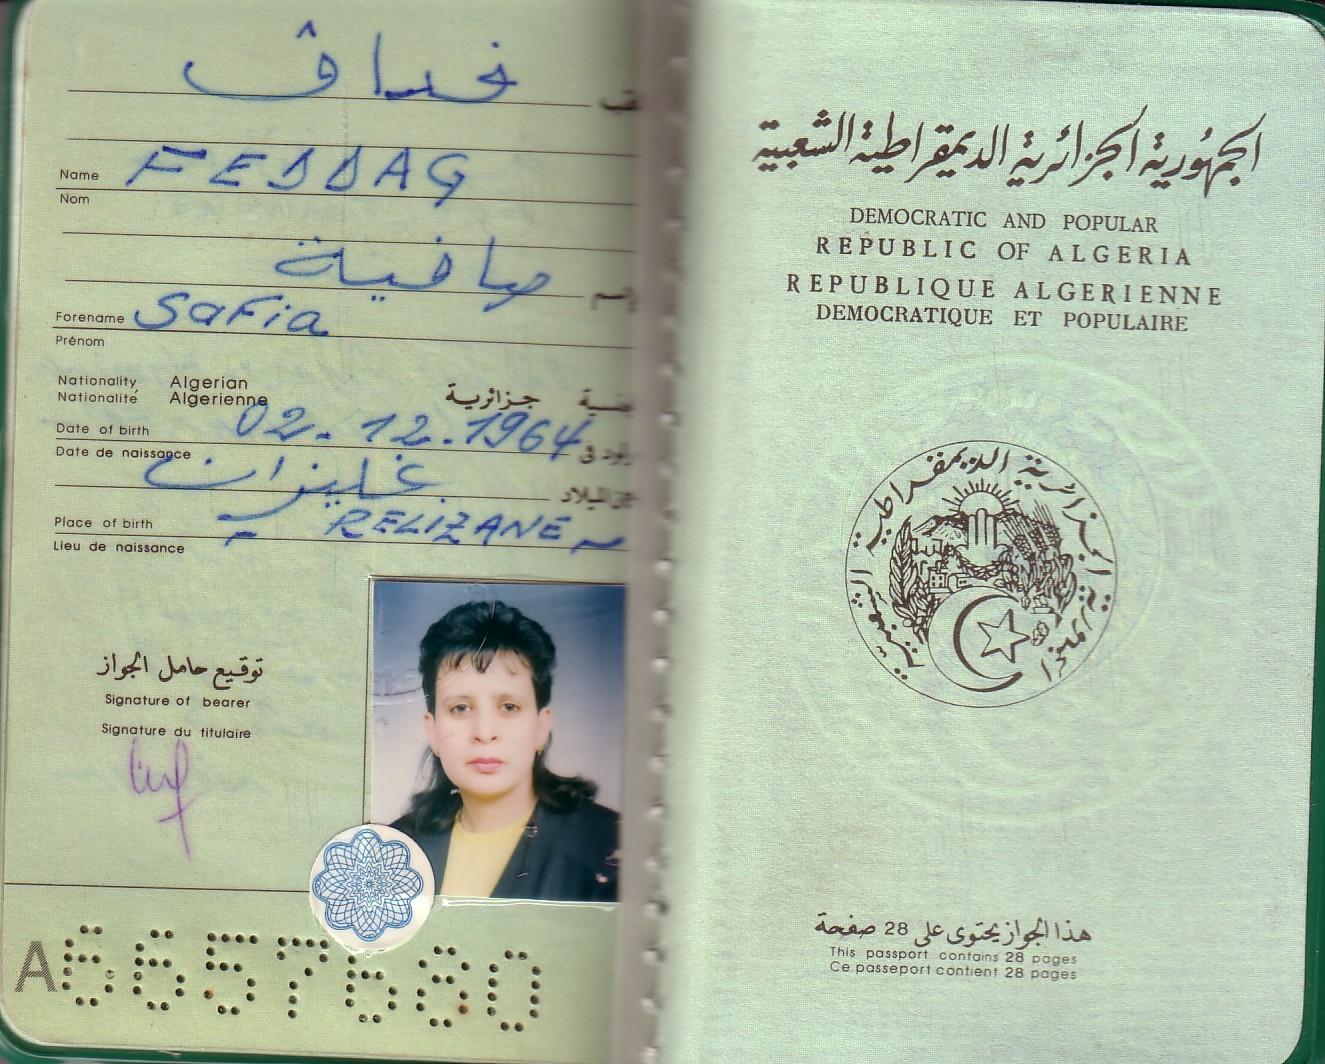 فداق
Name FEDDAG
Nom
صافية
Forename Safia
Prénom
Nationality Algerian
Nationalité Algerienne جزائرية
Date of birth 02.12.1964
Date de naissance
غليزان الميلاد
Place of birth RELIZANE
Lieu de naissance
توقيع حامل الجواز
Signature of bearer
Signature du titulaire
الجمهورية الجزائرية الديمقراطية الشعبية
DEMOCRATIC AND POPULAR
REPUBLIC OF ALGERIA
REPUBLIQUE ALGERIENNE
DEMOCRATIQUE ET POPULAIRE
الجمهورية الجزائرية الديمقراطية الشعبية
هذا الجواز يحتوى على 28 صفحة
This passport contains 28 pages
Ce passeport contient 28 pages